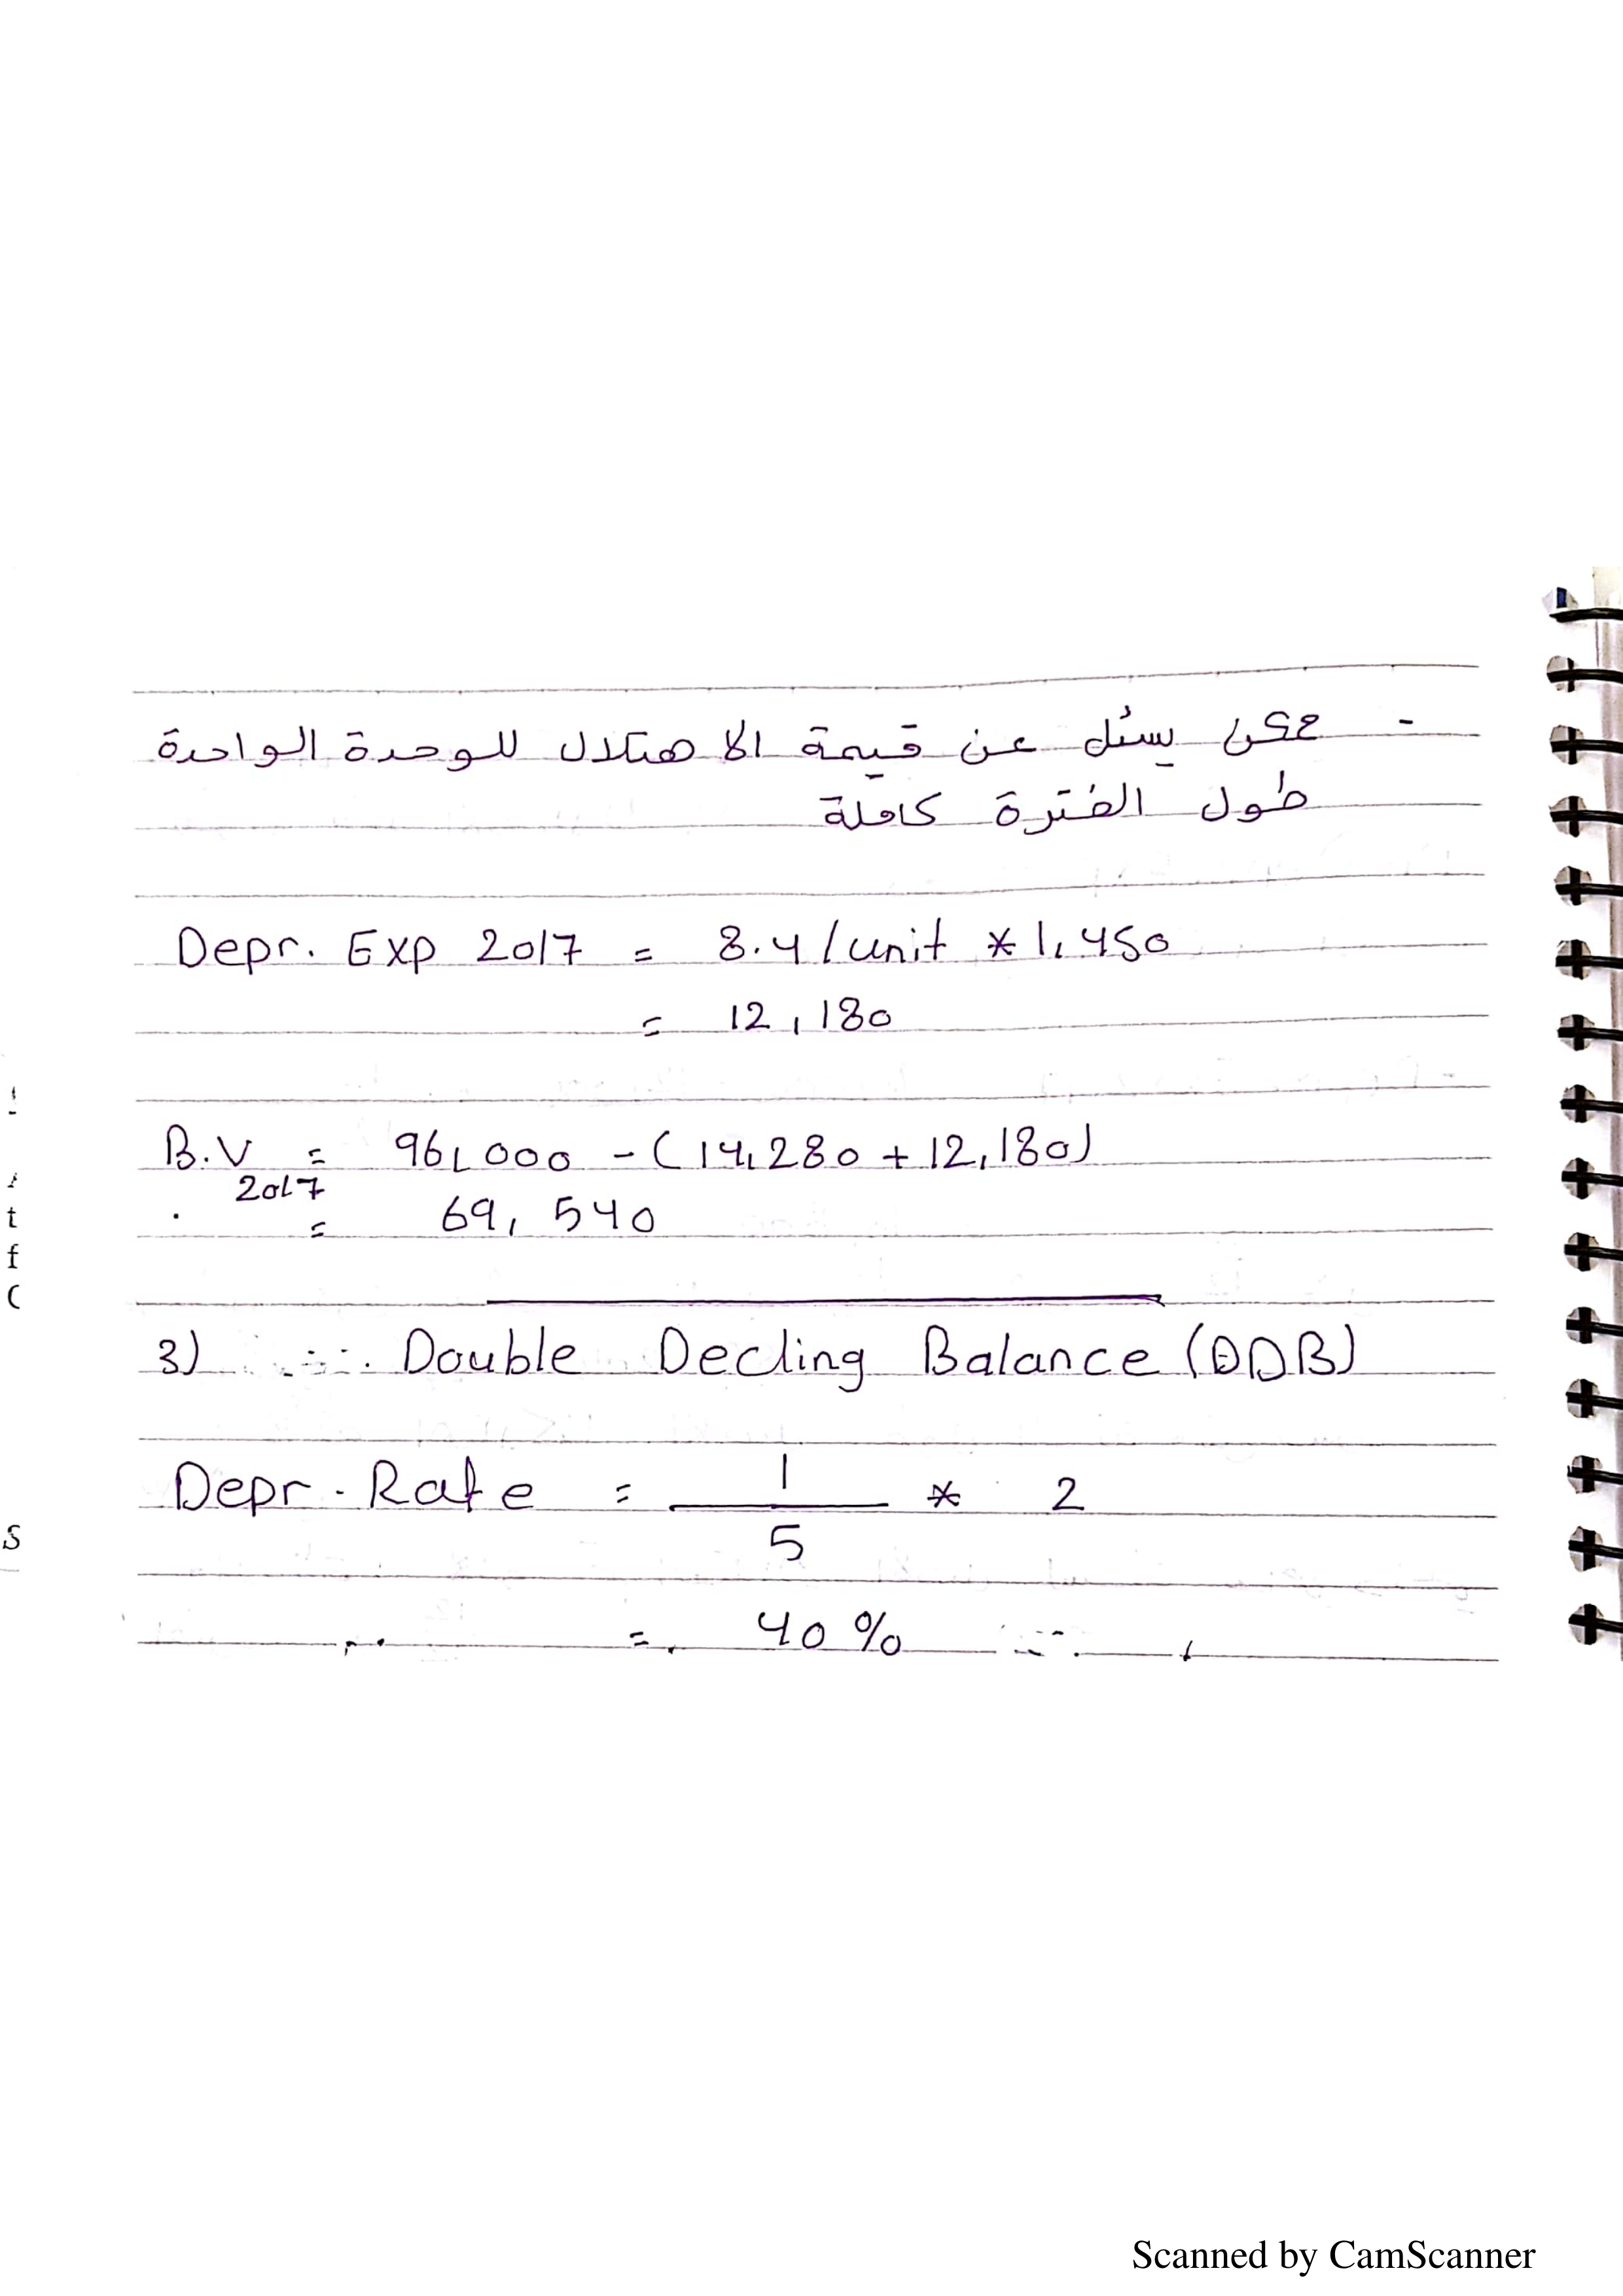 - ممكن يسئل عن قيمة الاهتلال للوحدة الواحدة
طول الفترة كاملة
Depr. Exp 2017 = 8.4 / unit * 1,450
= 12,180
B.V 2017 = 96,000 - (14,280 + 12,180)
= 69,540
3) Double Decling Balance (DDB)
Depr. Rate = 1/5 * 2
= 40%
t
f
C
S
Scanned by CamScanner